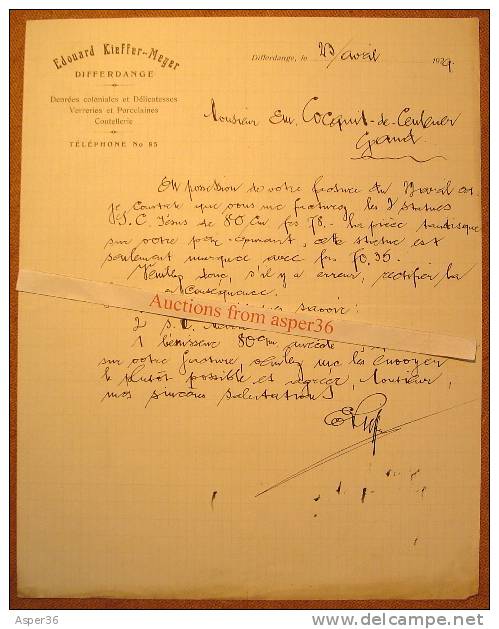 Edouard Kieffer-Meyer
DIFFERDANGE
Denrées coloniales et Délicatesses
Verreries et Porcelaines
Coutellerie
TÉLÉPHONE No 85
Differdange, le 23 avril 1929.
Monsieur Em. Cocquit-de-Ceuleneer
Gand
En possession de votre facture du avril
je constate que vous me facturez les 2 statues
S. C. Jésus de 80 cm frs 78.- la pièce tandisque
sur votre prix-courant, cette statue est
seulement marquée avec frs 70.35.
Veuillez donc, s'il y a erreur, rectifier la
conséquence.
savoir:
2 S.
1 80cm
sur votre facture, veuillez me les envoyer
le plutôt possible et agréer, Monsieur,
mes sincères salutations
Auctions from asper36
Asper36
www.delcampe.net